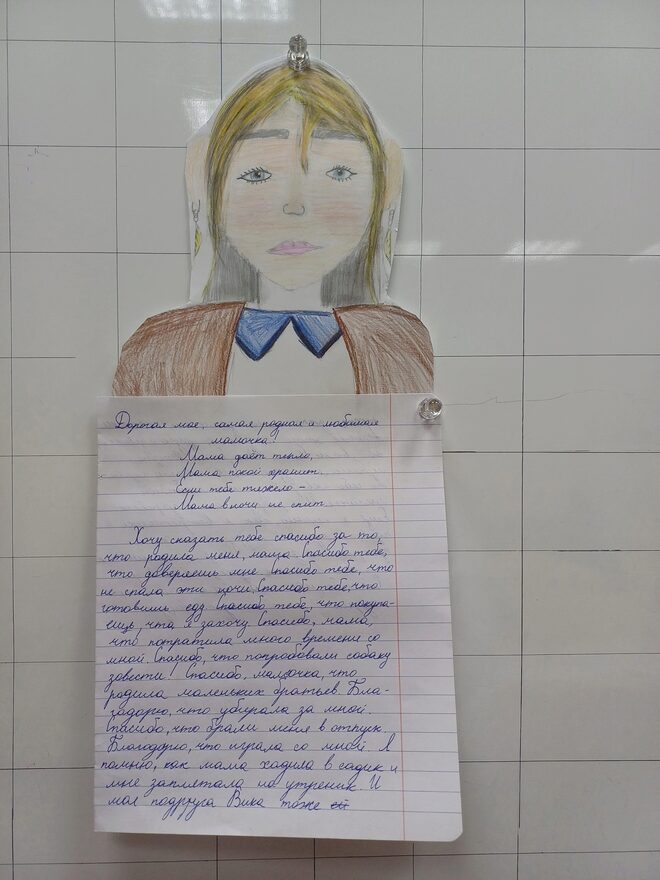 Дорогая мое, самая родная и любимая
мамочка!
Мама даёт тепло,
Мама покой хранит.
Если тебе тяжело –
Мама в ночи не спит.
Хочу сказать тебе спасибо за то,
что родила меня, мама. Спасибо тебе,
что доверяешь мне. Спасибо тебе, что
не спала эти ночи. Спасибо тебе, что
готовишь еду. Спасибо тебе, что покупа-
ешь, что я захочу. Спасибо, мама,
что потратила много времени со
мной. Спасибо, что попробовали собаку
завести! Спасибо, мамочка, что
родила маленьких братьев. Бла-
годорю, что убирала за мной.
Спасибо, что брали меня в отпуск.
Благодорю, что играла со мной. Я
помню, как мама ходила в садик и
мне заплетала на утреник. И
моя подруга Вика тоже